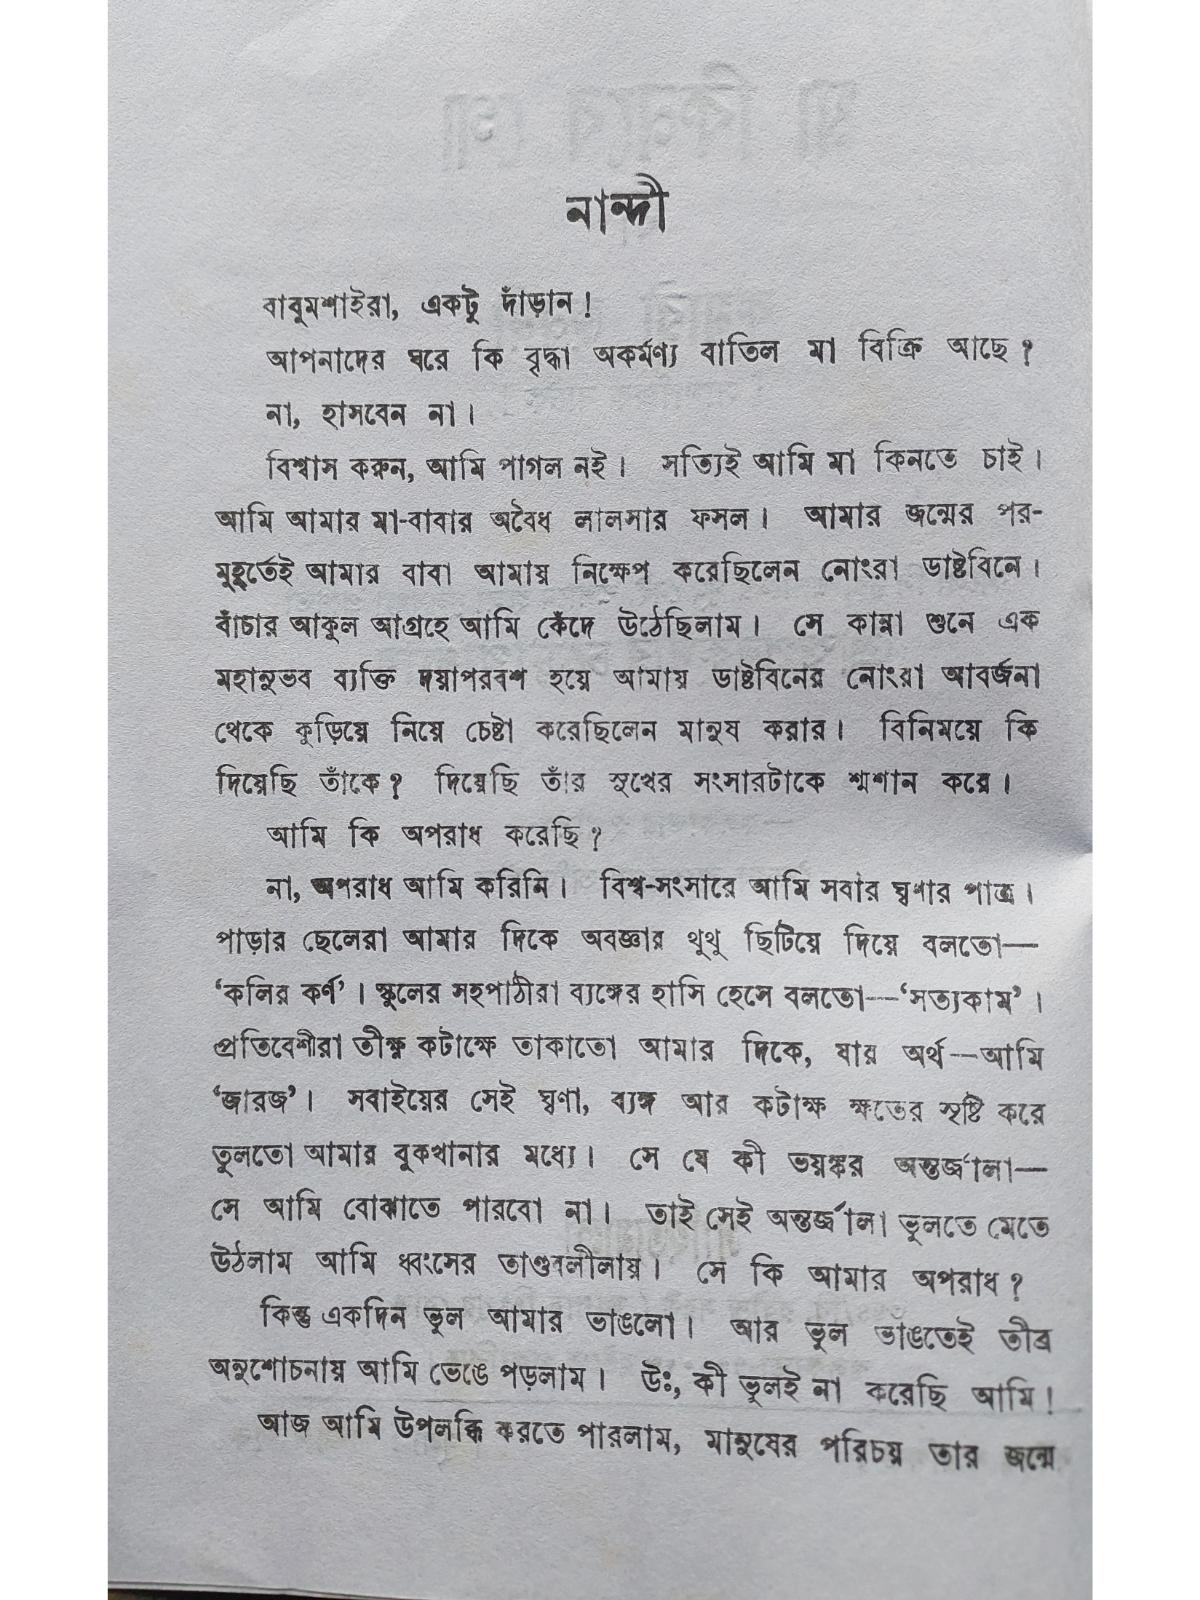 নান্দী
বাবুমশাইরা, একটু দাঁড়ান !
আপনাদের ঘরে কি বৃদ্ধা অকর্মণ্য বাতিল মা বিক্রি আছে ?
না, হাসবেন না ।
বিশ্বাস করুন, আমি পাগল নই । সত্যিই আমি মা কিনতে চাই ।
আমি আমার মা-বাবার অবৈধ লালসার ফসল । আমার জন্মের পর-
মুহূর্তেই আমার বাবা আমায় নিক্ষেপ করেছিলেন নোংরা ডাষ্টবিনে ।
বাঁচার আকুল আগ্রহে আমি কেঁদে উঠেছিলাম । সে কান্না শুনে এক
মহানুভব ব্যক্তি দয়াপরবশ হয়ে আমায় ডাষ্টবিনের নোংরা আবর্জনা
থেকে কুড়িয়ে নিয়ে চেষ্টা করেছিলেন মানুষ করার । বিনিময়ে কি
দিয়েছি তাঁকে ? দিয়েছি তাঁর সুখের সংসারটাকে শ্মশান করে ।
আমি কি অপরাধ করেছি ?
না, অপরাধ আমি করিনি । বিশ্ব-সংসারে আমি সবার ঘৃণার পাত্র ।
পাড়ার ছেলেরা আমার দিকে অবজ্ঞার থুথু ছিটিয়ে দিয়ে বলতো—
‘কলির কর্ণ’ । স্কুলের সহপাঠীরা ব্যঙ্গের হাসি হেসে বলতো—‘সত্যকাম’ ।
প্রতিবেশীরা তীক্ষ্ণ কটাক্ষে তাকাতো আমার দিকে, যার অর্থ—আমি
‘জারজ’ । সবাইয়ের সেই ঘৃণা, ব্যঙ্গ আর কটাক্ষ ক্ষতের সৃষ্টি করে
তুলতো আমার বুকখানার মধ্যে । সে যে কী ভয়ঙ্কর অন্তর্জ্বালা—
সে আমি বোঝাতে পারবো না । তাই সেই অন্তর্জ্বালা ভুলতে মেতে
উঠলাম আমি ধ্বংসের তাণ্ডবলীলায় । সে কি আমার অপরাধ ?
কিন্তু একদিন ভুল আমার ভাঙলো । আর ভুল ভাঙতেই তীব্র
অনুশোচনায় আমি ভেঙে পড়লাম । উঃ, কী ভুলই না করেছি আমি !
আজ আমি উপলব্ধি করতে পারলাম, মানুষের পরিচয় তার জন্মে